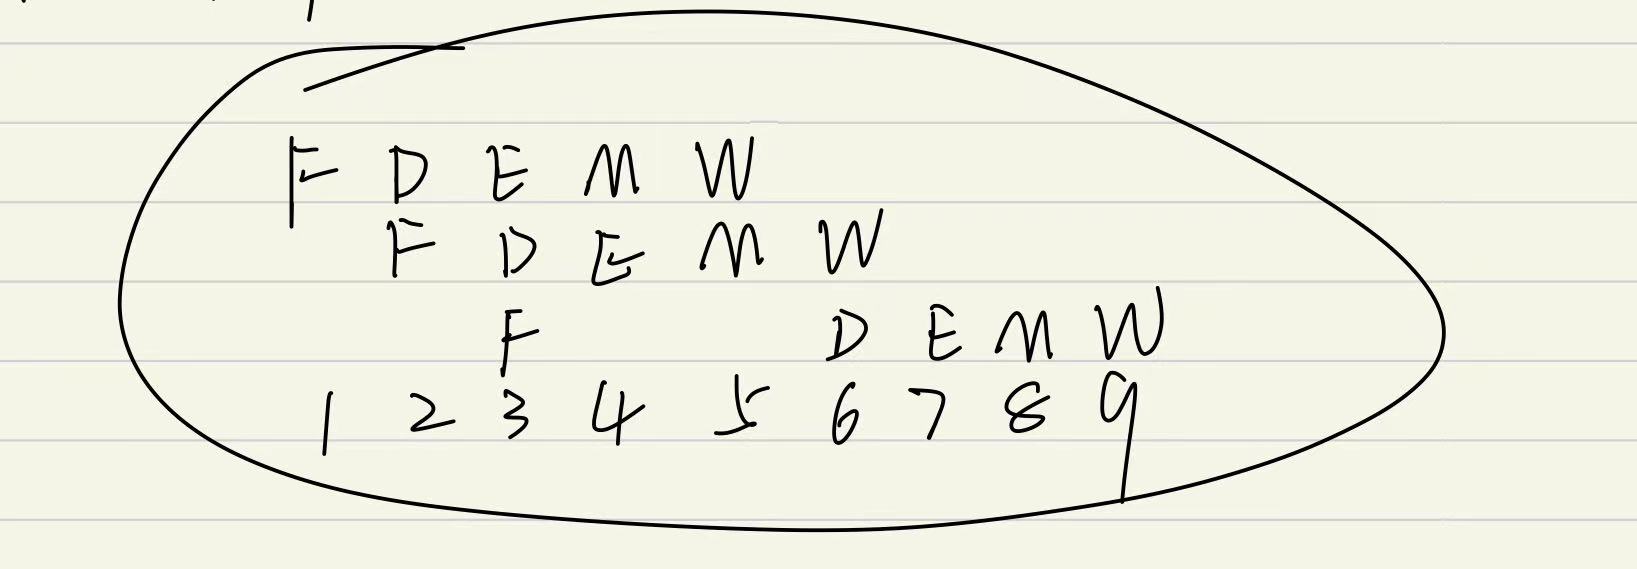 F D E M W
F D E M W
F D E M W
1 2 3 4 5 6 7 8 9